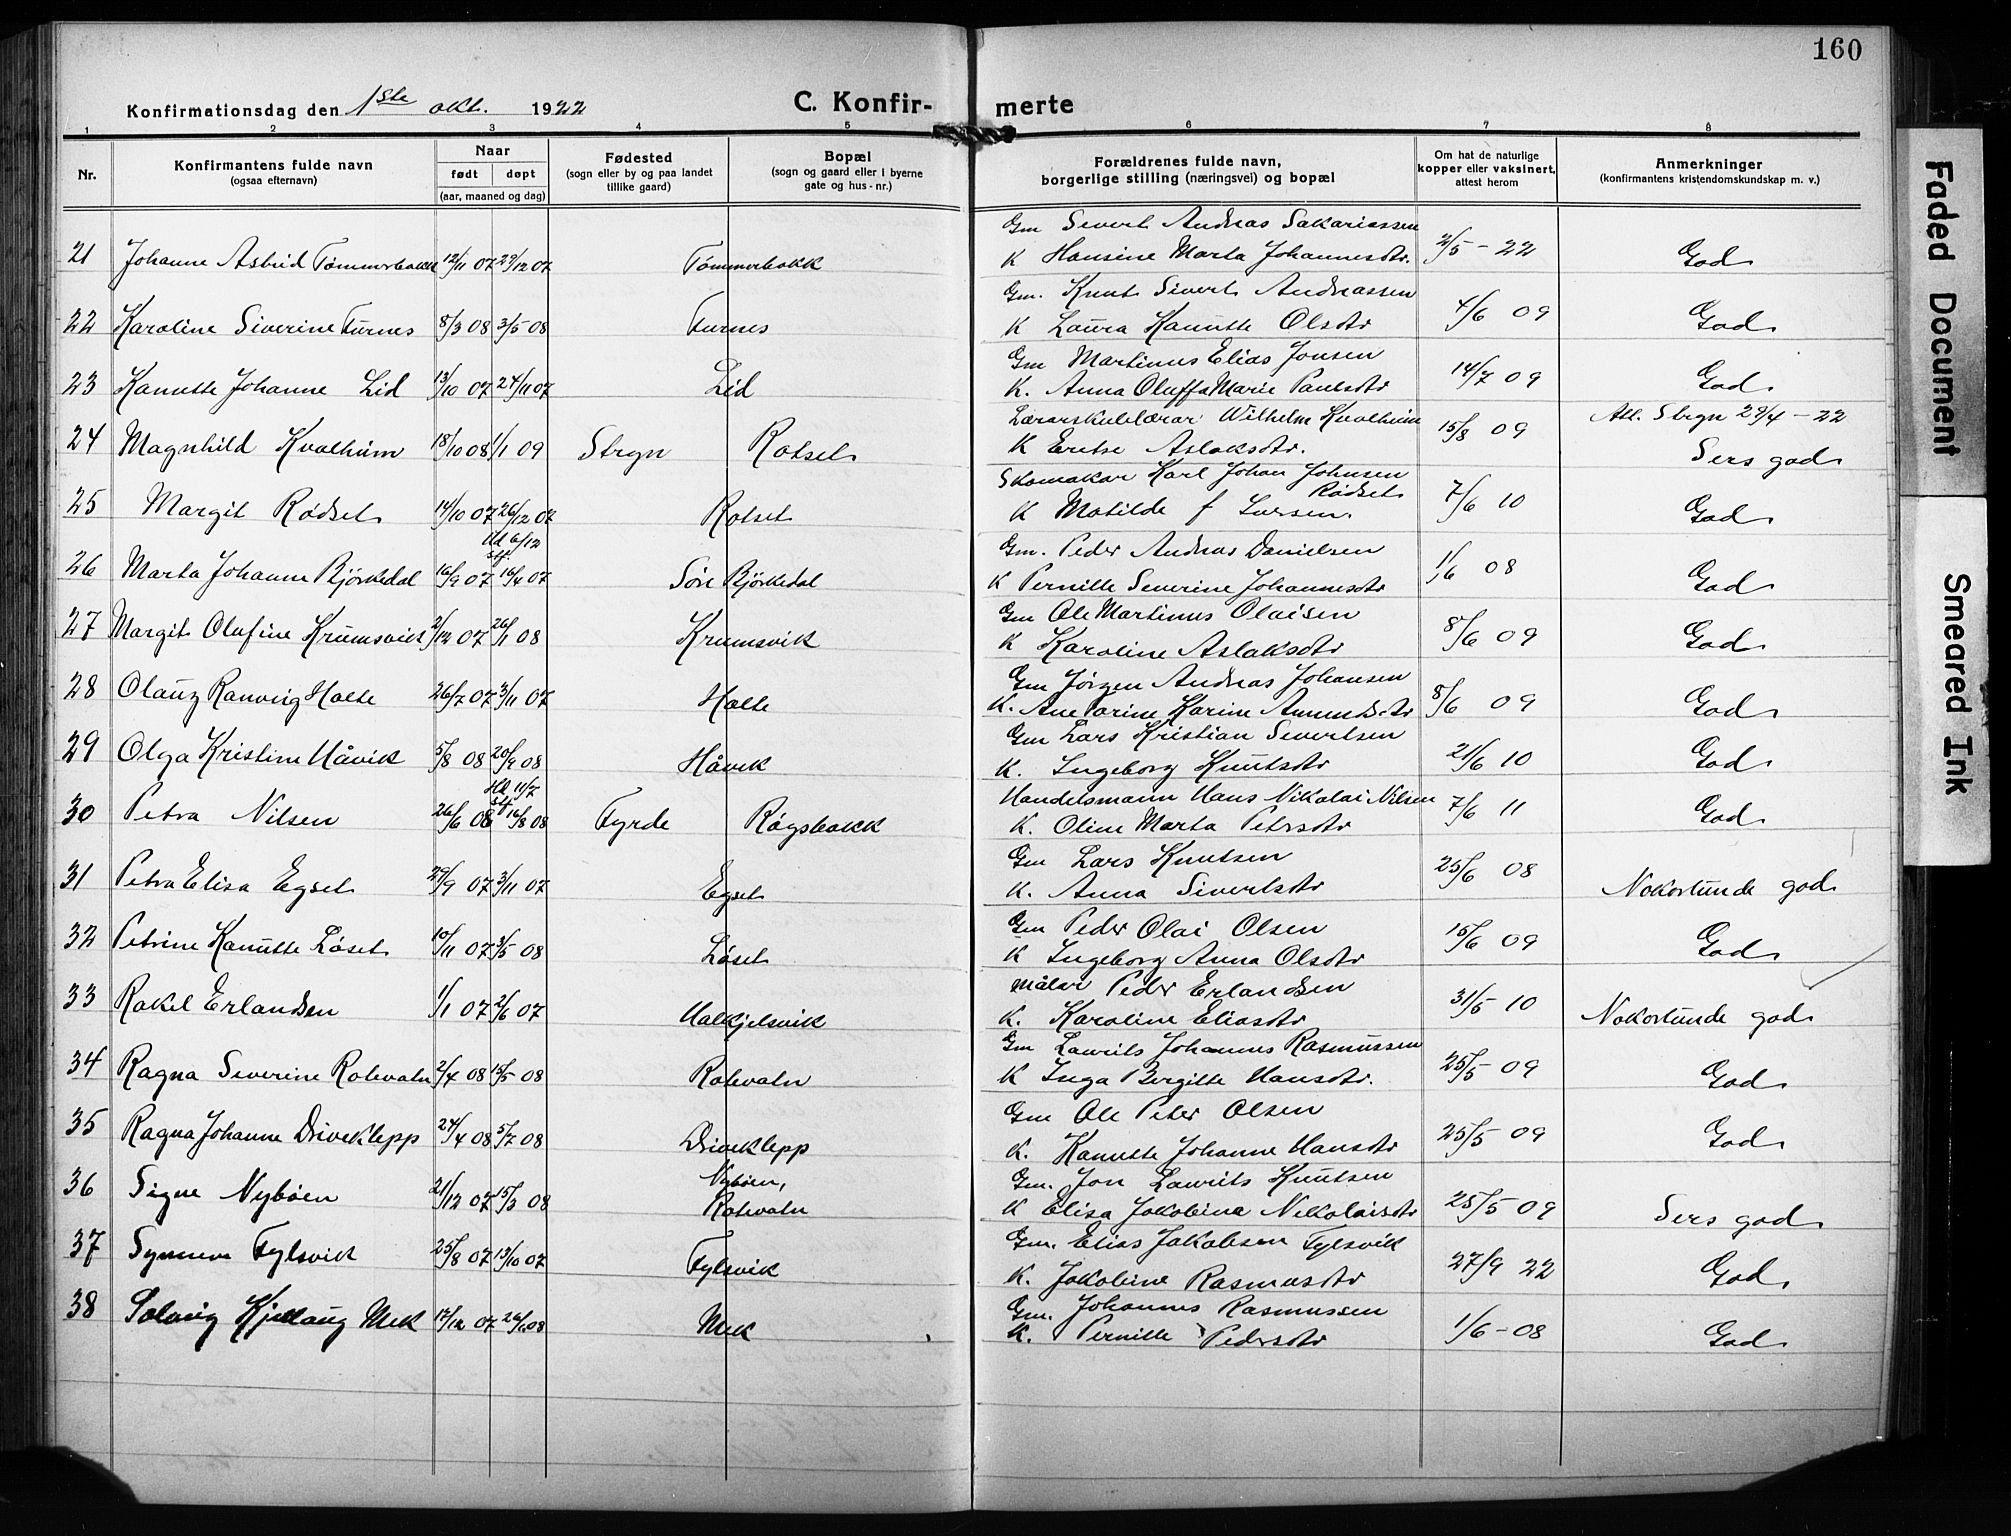 160
Konfirmationsdag den 1ste okt. 1922
C. Konfirmerte
1 2 3 4 5 6 7 8
Nr. | Konfirmantens fulde navn (ogsaa efternavn) | Naar født | døpt (aar, maaned og dag) | Fødested (sogn eller by og paa landet tillike gaard) | Bopæl (sogn og gaard eller i byerne gate og hus-nr.) | Forældrenes fulde navn, borgerlige stilling (næringsvei) og bopæl | Om hat de naturlige kopper eller vaksinert, attest herom | Anmerkninger (konfirmantens kristendomskundskap m. v.)
21 Johanne Astrid Tømmerbakk 12/11 07 29/12 07 Tømmerbakk Gm Sivert Andreas Sakariassen 2/5-22
K Hansine Marta Johannesdtr. God
22 Karoline Siverine Furnes 8/3 08 3/5 08 Furnes Gm. Knut Sivert Andreassen 4/6 09
K Laura Kanutte Olsdtr God
23 Kanutte Johanne Lid 13/10 07 24/11 07 Lid Gm Martinus Elias Jonsen 14/7 09
K. Anna Oluffa Marie Paulsdtr God
24 Magnhild Kvalheim 18/10 08 1/1 09 Stryn Rotset Lærarskulelærar Wilhelm Kvalheim 15/8 09 Att. Stryn 29/4-22
K Eritse Aslaksdtr. Sers god
25 Margit Rødset 14/10 07 26/12 07 Rotset Skomakar Karl Johan Johnsen Rødset 7/6 10
K Matilde f Larsen. God
26 Marta Johanne Bjørkedal 16/9 07 Hd 6/12 Stf. 16/4 07 Søre Bjørkedal Gm. Peder Andreas Danielsen 1/6 08
K Pernille Severine Johannesdtr God
27 Margit Olufine Krumsvik 2/12 07 26/1 08 Krumsvik Gm Ole Martinus Olaisen 8/6 09
K Karoline Aslaksdtr God
28 Olaug Ranveig Holte 26/7 07 3/11 07 Holte Gm Jørgen Andreas Johansen 8/6 09
K. Ane Karine Amundsdtr God
29 Olga Kristine Håvik 5/8 08 20/9 08 Håvik Gm Lars Kristian Severtsen 21/6 10
K. Ingeborg Knutsdtr God
30 Petra Nilsen 26/6 08 Hd 11/7 Stf 16/8 08 Fyrde Røgsbakk Handelsmann Hans Nikolai Nilsen 7/6 11
K. Oline Marta Petrsdtr God
31 Petra Elisa Egset 29/9 07 3/11 07 Egset Gm Lars Knutsen 25/6 08
K. Anna Sivertsdtr Nokorlunde god
32 Petrine Kanutte Løset 10/11 07 3/5 08 Løset Gm Peder Olai Olsen 15/6 09
K Ingeborg Anna Olsdtr God
33 Rakel Erlandsen 1/1 07 2/6 07 Halkjelsvik Målar Peder Erlandsen 31/5 10
K. Karoline Eliasdtr Nokorlunde god
34 Ragna Severine Rotevatn 2/4 08 15/5 08 Rotevatn Gm Laurits Johannes Rasmussen 25/5 09
K Inga Bergitte Hansdtr. God
35 Ragna Johanne Driveklepp 24/4 08 5/7 08 Driveklepp Gm Ole Peter Olsen 25/5 09
K. Kanutte Johanne Hansdtr God
36 Signe Nybøen 21/12 07 15/3 08 Nybøen, Rotevatn Gm. Jon Laurits Knutsen 25/5 09
K Elisa Jakobina Nikolaisdtr Sers god
37 Synneve Fylsvik 25/8 07 13/10 07 Fylsvik Gm. Elias Jakobsen Fylsvik 27/9 22
K. Jakobine Rasmusdtr God
38 Solveig Kjellaug Mek 17/12 07 26/1 08 Mek Gm. Johannes Rasmussen 1/6-08
K. Pernille Pedersdtr God
Faded Document
Smeared Ink